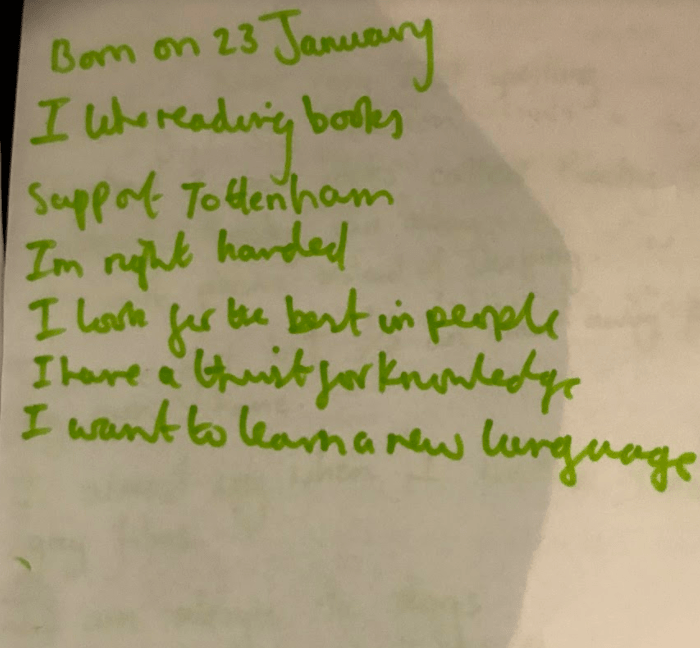 Born on 23 January
I like reading books
Support Tottenham
Im right handed
I look for the best in people
I have a thirst for knowledge
I want to learn a new language